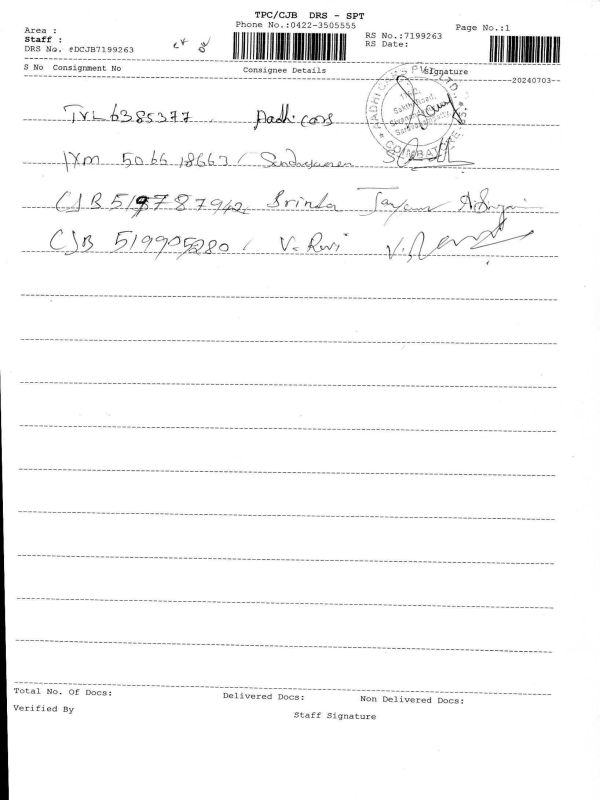 TPC/CJB DRS - SPT
Area :
Phone No.:0422-3505555
Page No.:1
Staff :
RS No.:7199263
DRS No. #DCJB7199263
RS Date:
S No Consignment No
Consignee Details
Signature
20240703
AADHI CARS PVT. LTD.
COIMBATORE
TVL 6385377 Aadhi cars
IXM 506618663
CJB 519787942 Srinda
CJB 519905280 V. Ravi
Total No. Of Docs:
Delivered Docs:
Non Delivered Docs:
Verified By
Staff Signature